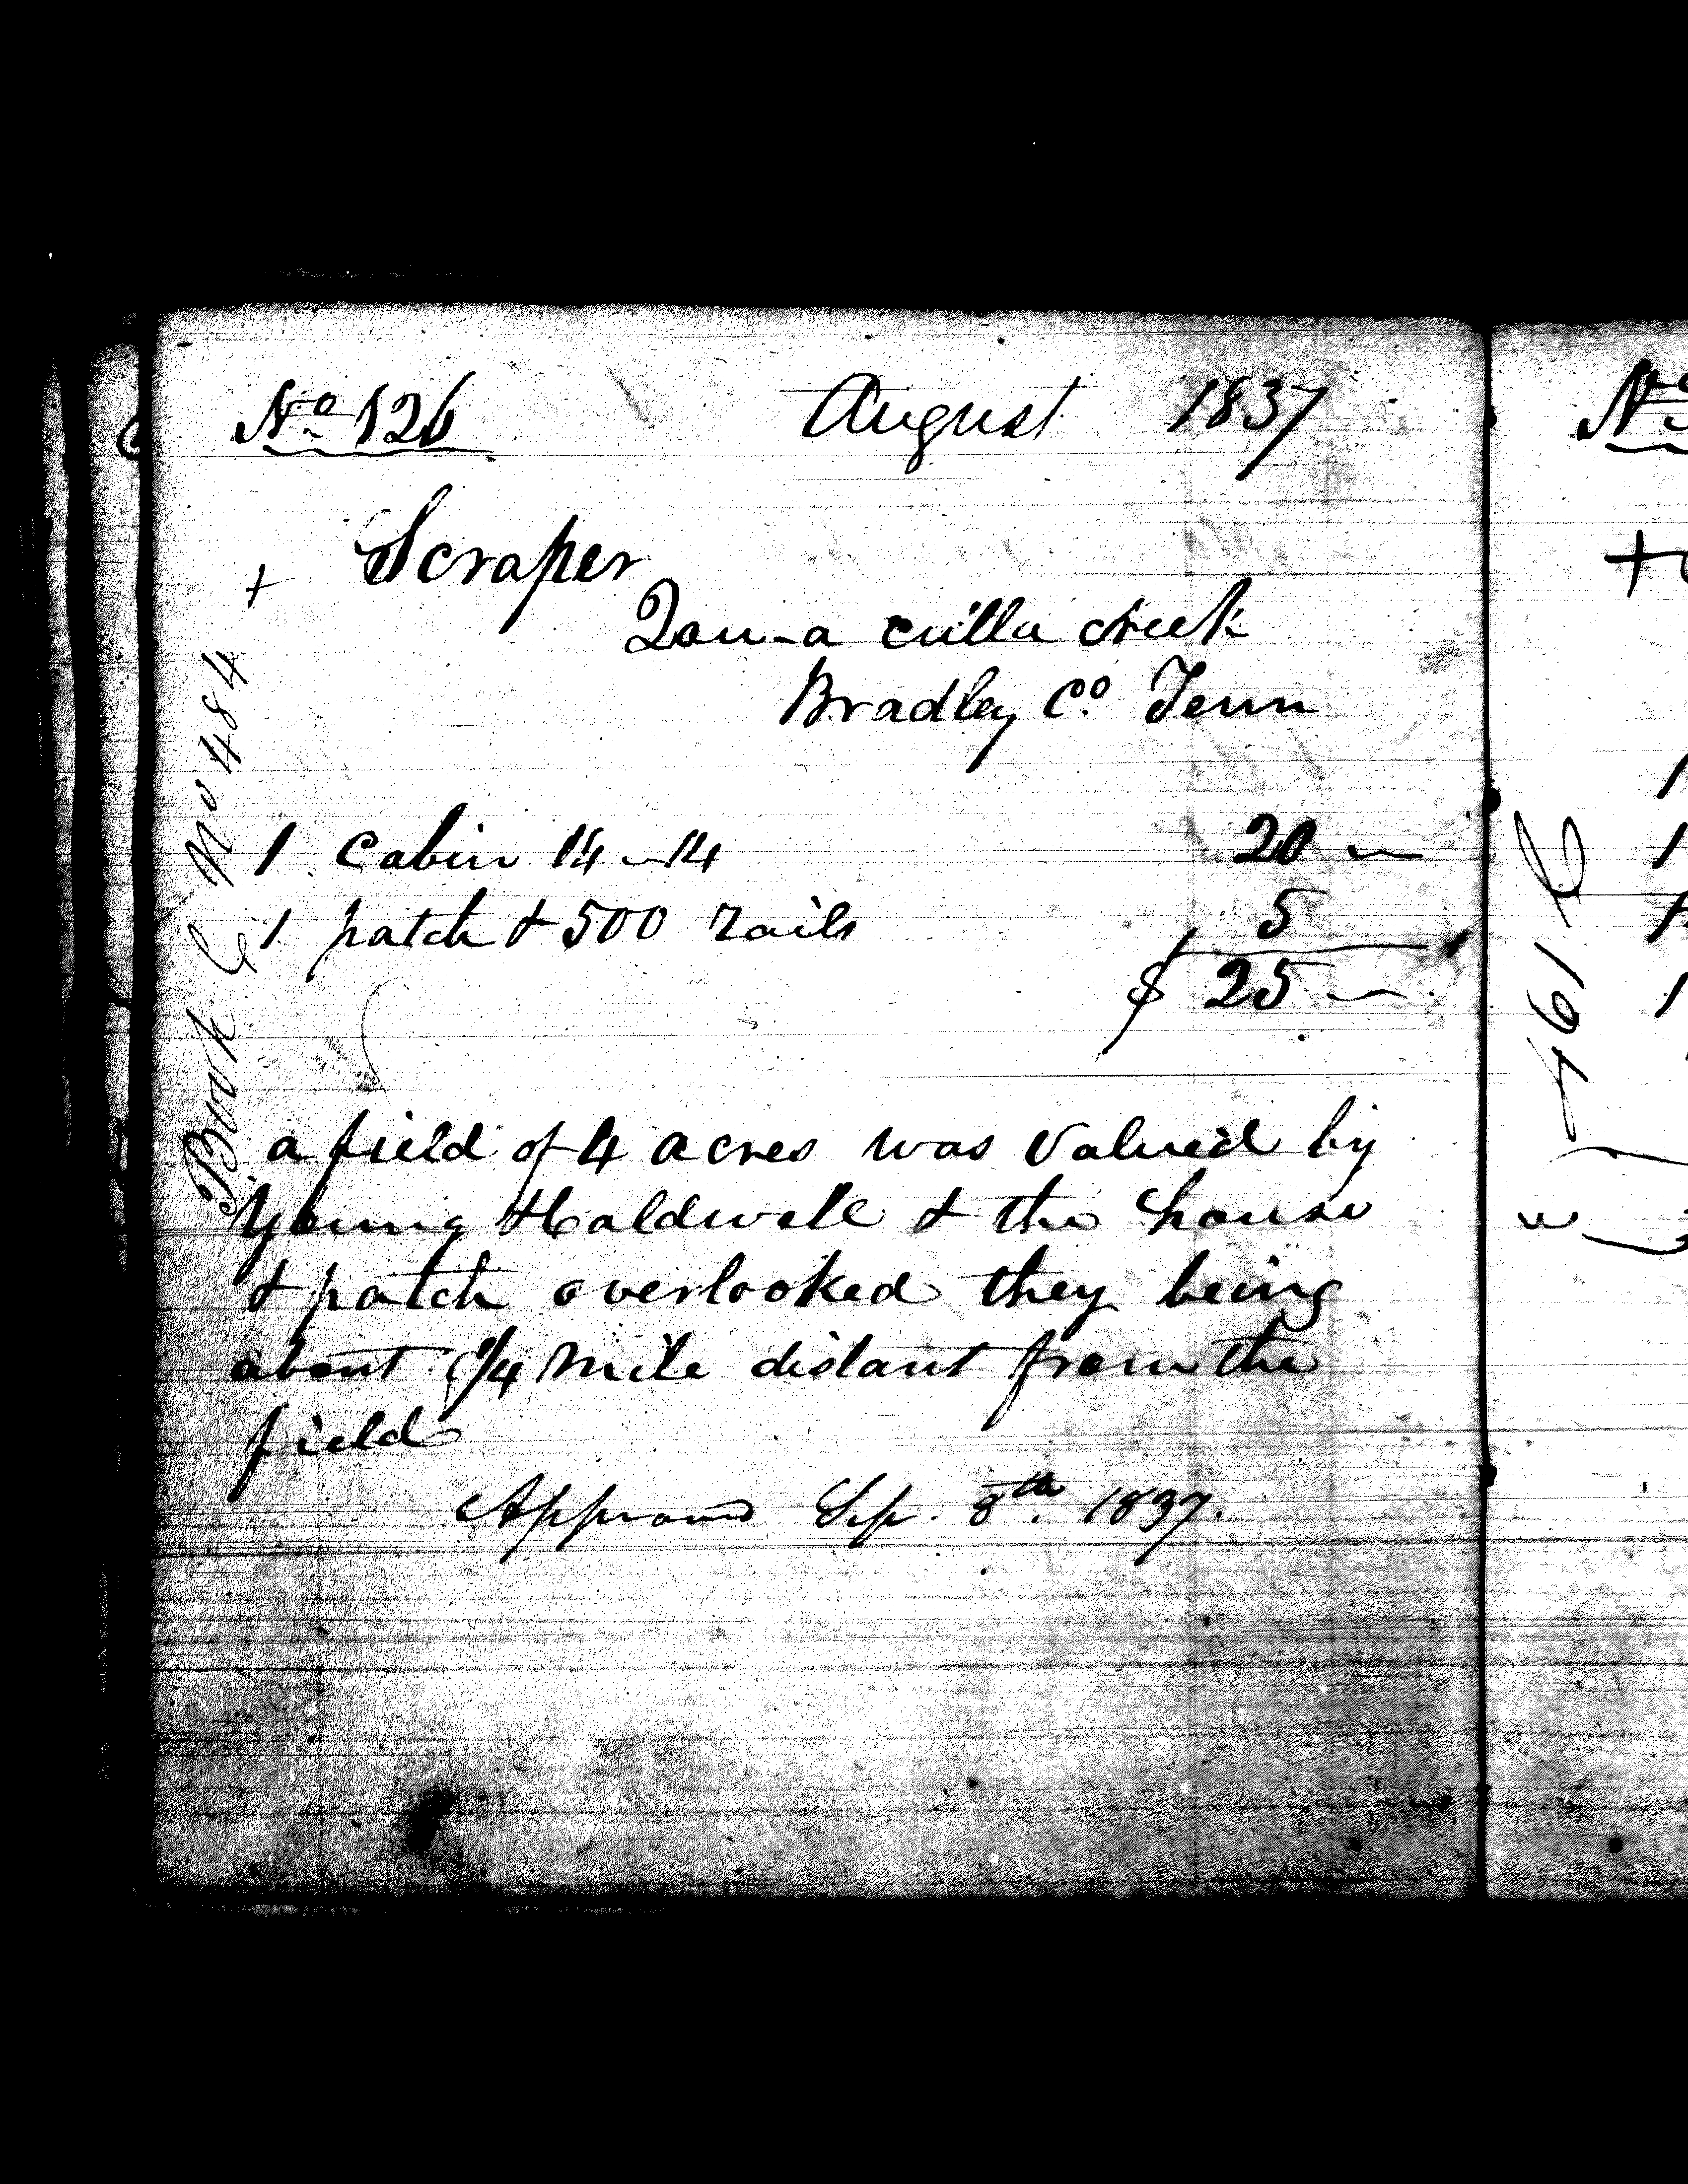 No 126 August 1837
+ Scraper
Cou-a culla creek
Bradley Co. Tenn
Book C No 484
1 Cabin 14 - 14 20
1 patch & 500 rails 5
$ 25
a field of 4 acres was valued by
Young & Caldwell & the house
& patch overlooked they being
about 1/4 mile distant from the
field
Approved Sep. 8th. 1837.
No